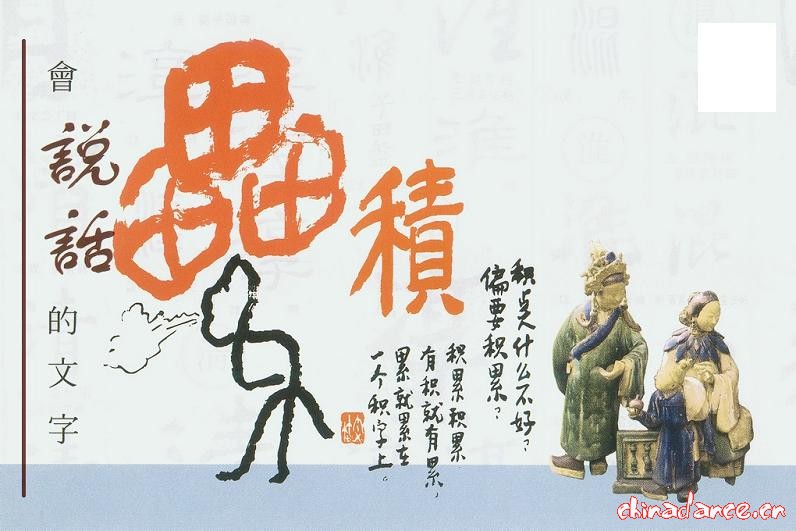 會說話的文字
纍積
积点儿什么不好？
偏要积累？
积累积累
有积就有累，
累就累在
一个积字上。
chinadance.cn